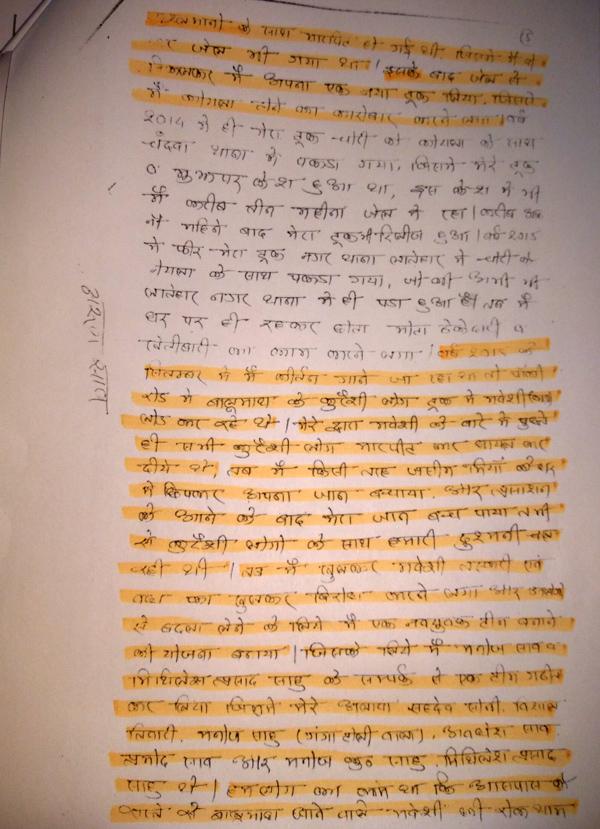 मुसलमानो के साथ मारपीट हो गई थी. जिसमे मै
जेल भी गया था। इसके बाद जेल से
निकलकर मै अपना एक नया ट्रक लिया. जिससे
मै कोयला ढोने का कारोबार करने लगा। वर्ष
2014 मे ही मेरा ट्रक चोरी को कोयला के साथ
चंदवा थाना मे पकडा गया, जिसमे मेरे ट्रक
व मुझपर केश हुआ था, इस केश मे भी
मै करीब तीन महीना जेल मे रहा। करीब
नौ महिने बाद मेरा ट्रक भी रिलीज हुआ। वर्ष 2015
मे फीर मेरा ट्रक नगर थाना लातेहार मे चोरी के
कोयला के साथ पकडा गया, जो की अभी भी
लातेहार नगर थाना मे ही पडा हुआ है। तब मै
घर पर ही रहकर छोटा मोटा ठेकेदारी व
खेतीबारी का काम करने लगा। वर्ष को
सितम्बर मे मै कीर्तन गाने जा रहा था तो
रोड मे बालूमाथ के कुरैशी लोग ट्रक मे मवेशी
लोड कर रहे थे। मेरे द्वारा मवेशी के बारे मे पुछते
ही सभी कुरैशी लोग मारपीट कर घायल कर
दीये थे, तब मै किसी तरह जसीम मियां के घर
मे छिपकर अपना जान बचाया. और प्रशासन
के आने के बाद मेरा जान बच पाया तभी
से कुरैशी लोगो के साथ हमारी दुश्मनी चल
रही थी। तब मै खुलकर मवेशी तस्करी एवं
का खुलकर विरोध करने लगा और
से बदला लेने के लिये मै एक नवयुवक टीम बनाने
की योजना बनाया। जिसके लिये मै मनोज साव व
मिथिलेश प्रसाद साहु के सम्पर्क से एक टीम गठीत
कर लिया जिसमे मेरे अलावा सहदेव सोनी. विशाल
तिवारी. मनोज साहु ( वाला), अवधेश साव
प्रमोद साव और मनोज साहु. मिथिलेश प्रसाद
साहु थे। हमलोग का काम था कि आसपास के
रास्ते से बालूमाथ जाने वाले मवेशी की रोक थाम